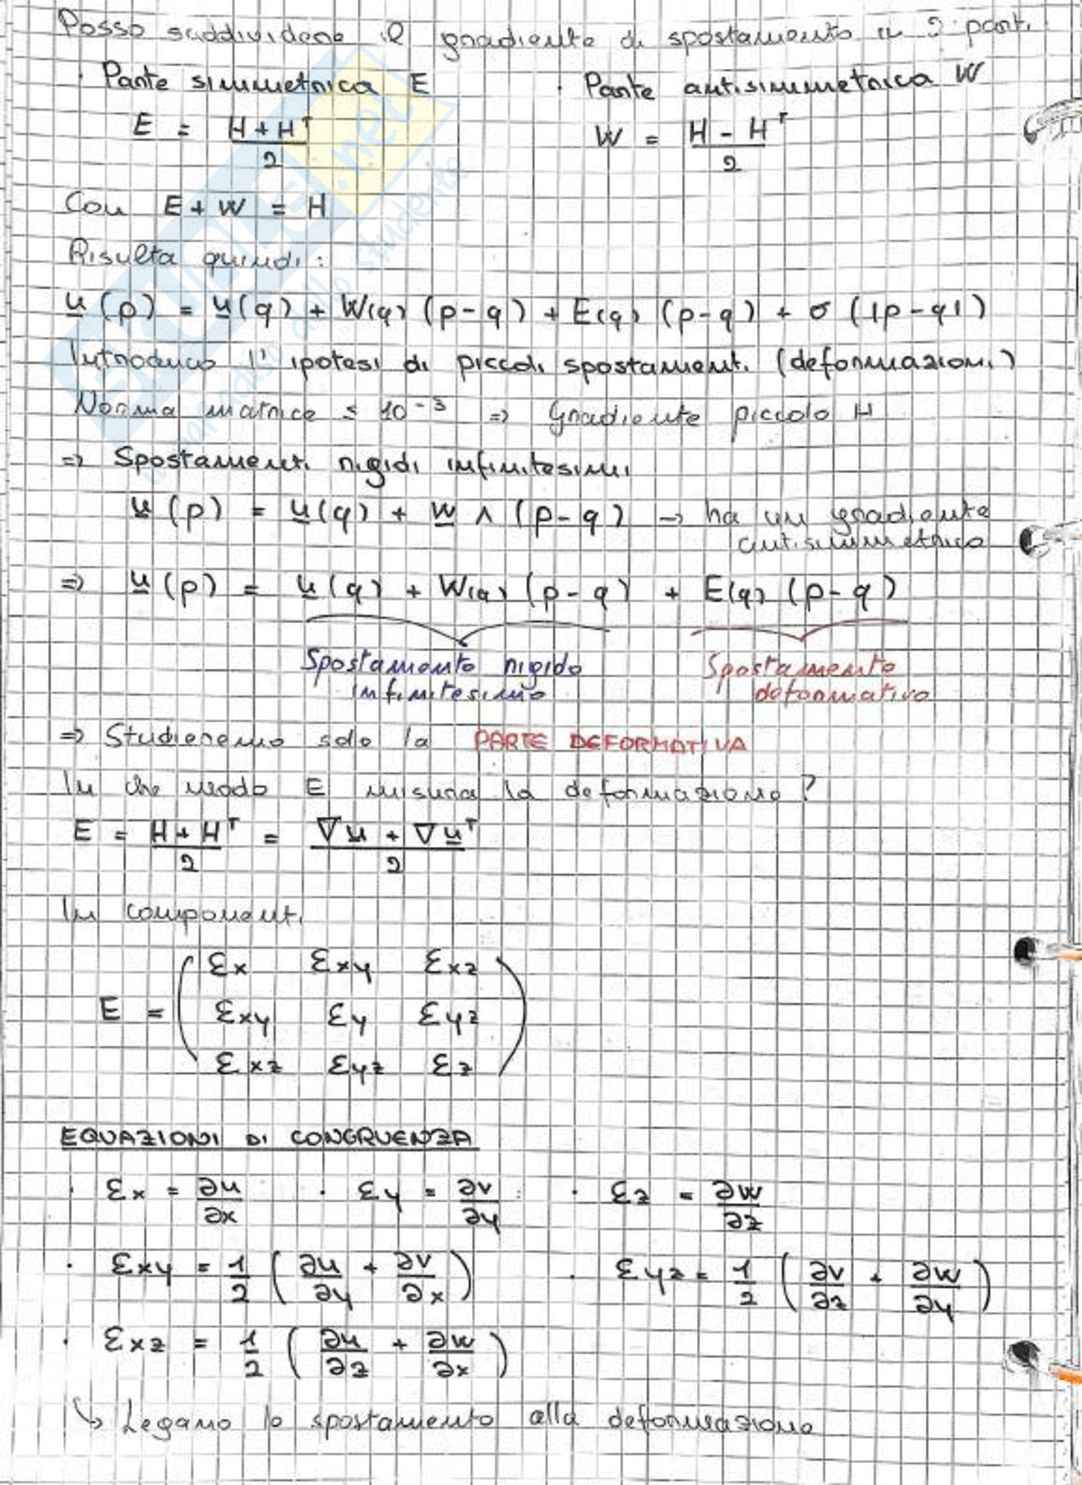 Posso suddividere il gradiente di spostamento in 2 parti
· Parte simmetrica E · Parte antisimmetrica W
E = (H + Hᵀ)/2 W = (H - Hᵀ)/2
Con E + W = H
Risulta quindi:
u(p) = u(q) + W(q) (p-q) + E(q) (p-q) + σ (|p-q|)
Introduco l'ipotesi di piccoli spostamenti (deformazioni)
Norma matrice ≤ 10⁻³ => Gradiente piccolo H
=> Spostamenti rigidi infinitesimi
u(p) = u(q) + w ∧ (p-q) → ha un gradiente
antisimmetrico
=> u(p) = u(q) + W(q) (p-q) + E(q) (p-q)
Spostamento rigido Spostamento
infinitesimo deformativo
=> Studieremo solo la PARTE DEFORMATIVA
In che modo E misura la deformazione?
E = (H + Hᵀ)/2 = (∇u + ∇uᵀ)/2
In componenti
εx εxy εxz
E = εxy εy εyz
εxz εyz εz
EQUAZIONI DI CONGRUENZA
· εx = ∂u/∂x · εy = ∂v/∂y · εz = ∂w/∂z
· εxy = 1/2 (∂u/∂y + ∂v/∂x) · εyz = 1/2 (∂v/∂z + ∂w/∂y)
· εxz = 1/2 (∂u/∂z + ∂w/∂x)
↳ Legano lo spostamento alla deformazione